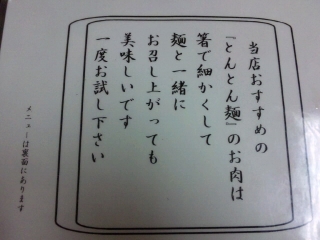 当店おすすめの
『とんとん麺』のお肉は
箸で細かくして
麺と一緒に
お召し上がっても
美味しいです
一度お試し下さい
メニューは裏面にあります